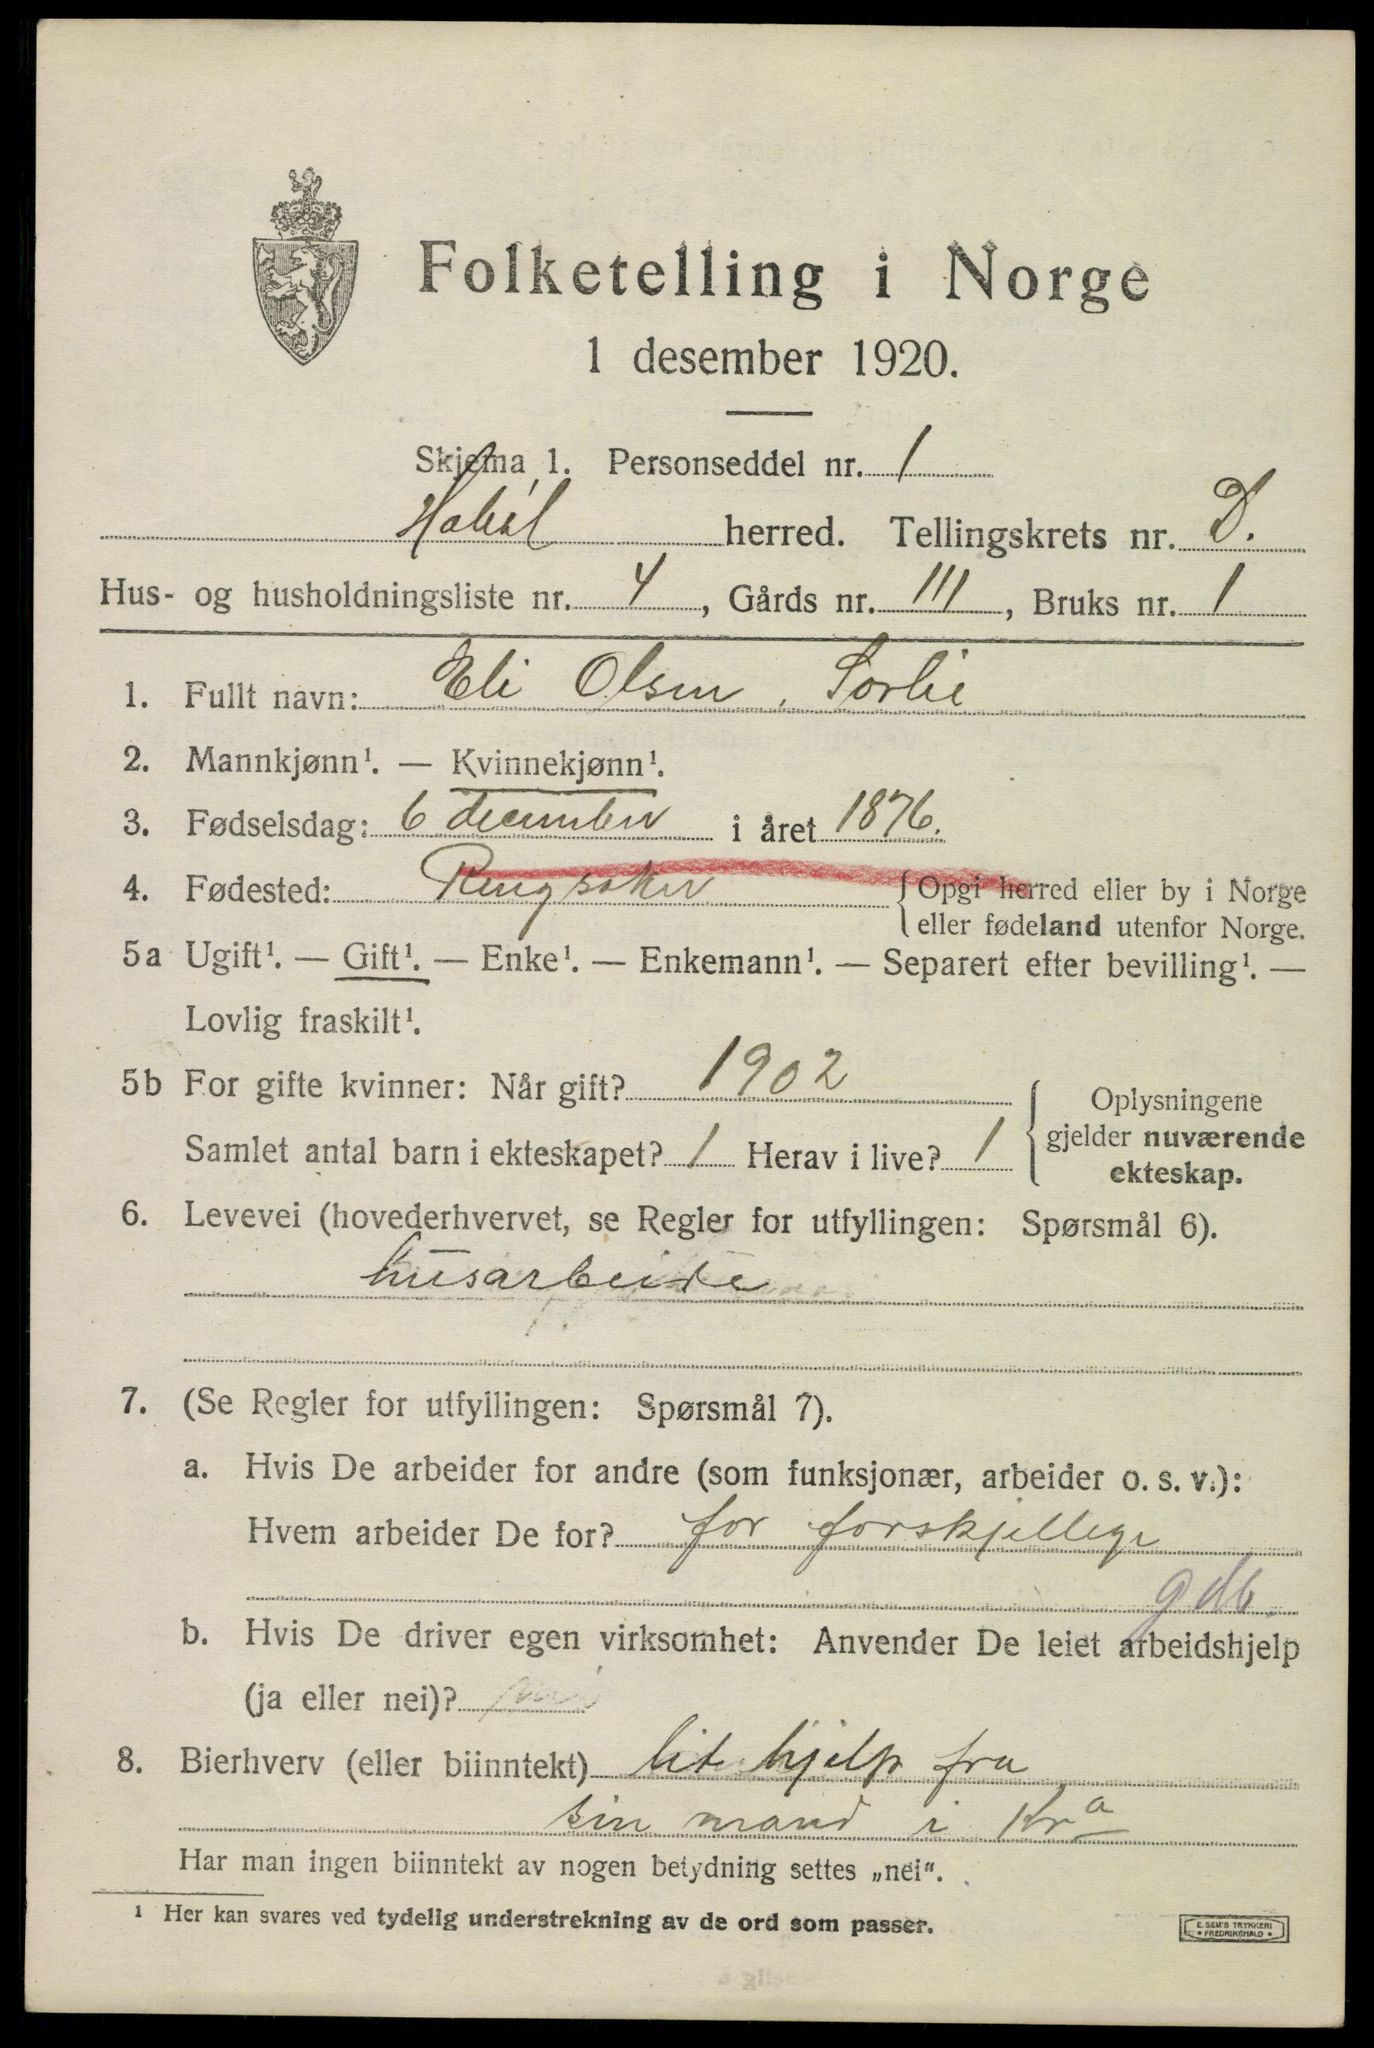 Folketelling i Norge
1 desember 1920.
Skjema 1. Personseddel nr. 1
Hobøl herred. Tellingskrets nr. D.
Hus- og husholdningsliste nr. 4, Gårds nr. 111, Bruks nr. 1
1. Fullt navn: Eli Olsen, Sorlie
2. Mannkjønn¹. — Kvinnekjønn¹.
3. Fødselsdag: 6 december i året 1876.
4. Fødested: Ringsaker { Opgi herred eller by i Norge
eller fødeland utenfor Norge.
5a Ugift¹. — Gift¹. — Enke¹. — Enkemann¹. — Separert efter bevilling¹. —
Lovlig fraskilt¹.
5b For gifte kvinner: Når gift? 1902
Samlet antal barn i ekteskapet? 1 Herav i live? 1
{ Oplysningene
gjelder nuværende
ekteskap.
6. Levevei (hovederhvervet, se Regler for utfyllingen: Spørsmål 6).
husarbeide
7. (Se Regler for utfyllingen: Spørsmål 7).
a. Hvis De arbeider for andre (som funksjonær, arbeider o. s. v.):
Hvem arbeider De for? for forskjellige
gdb.
b. Hvis De driver egen virksomhet: Anvender De leiet arbeidshjelp
(ja eller nei)? nei
8. Bierhverv (eller biinntekt) lit hjelp fra
sin mand i Kra
Har man ingen biinntekt av nogen betydning settes „nei“.
1 Her kan svares ved tydelig understrekning av de ord som passer.
E. SEM'S TRYKKERI
• FREDRIKSHALD •